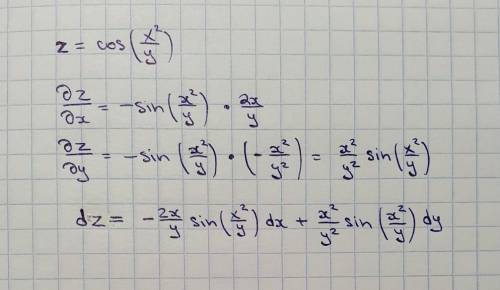 z = cos(x²/y)
∂z/∂x = -sin(x²/y) • 2x/y
∂z/∂y = -sin(x²/y) • (-x²/y²) = x²/y² sin(x²/y)
dz = -2x/y sin(x²/y) dx + x²/y² sin(x²/y) dy